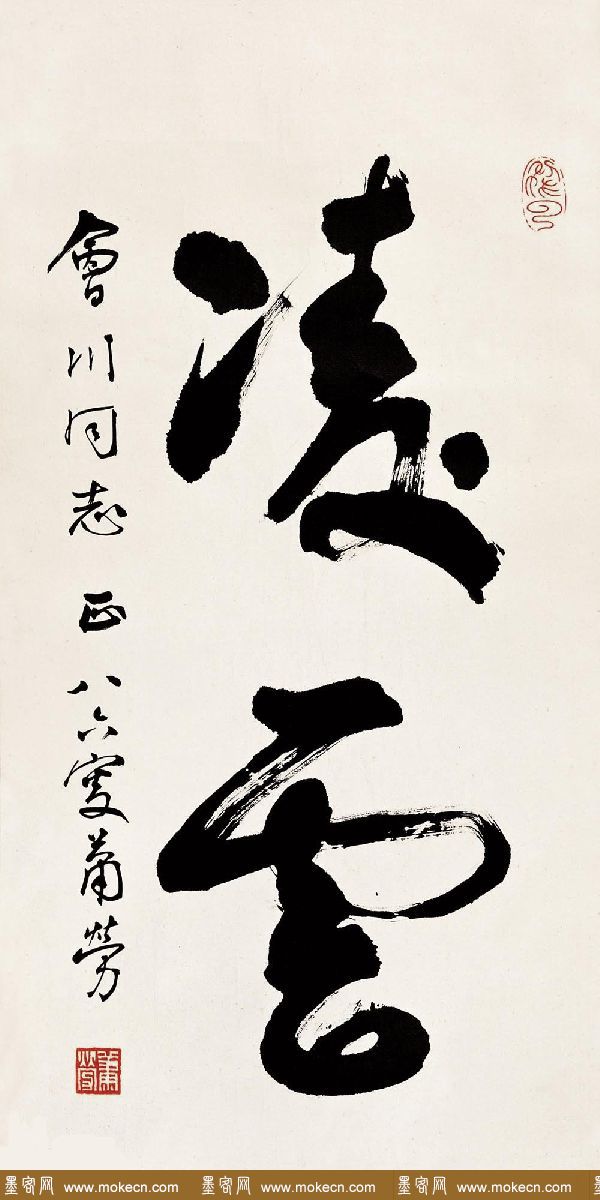 凌雲
會川同志 正 八六叟蕭勞
蕭勞
墨客网 www.mokecn.com 墨客网 www.mokecn.com 墨客网 www.mokecn.com